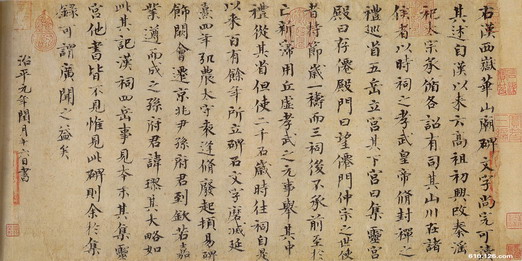 右漢西嶽華山廟碑文字尚完可讀
其述自漢以來云高祖初興改秦淫
祀太宗承循各詔有司其山川在諸
侯者以時祠之孝武皇帝脩封禪之
禮巡省五岳立宮其下宮曰集靈宮
殿曰存僊殿門曰望僊門仲宗之世使
者持節歲一禱而三祠後不承前至於
亡新寖用丘虛孝武之元事舉其中
禮從其省但使二千石歲時往祠自是
以來百有餘年所立碑石文字磨滅延
熹四年弘農太守袁逢脩廢起頓易碑
飾闕會遷京兆尹孫府君到欽若嘉
業遵而成之孫府君諱璆其大略如
此其記漢祠四岳事見本末其集靈
宮他書皆不見惟見此碑則余於集
錄可謂廣聞之益矣
治平元年閏月十六日書
610.126.com